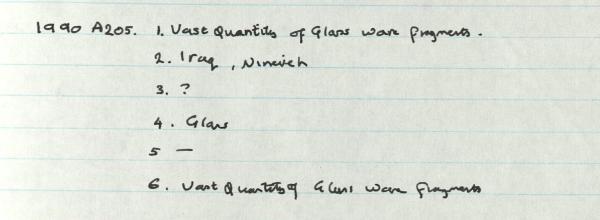 1990 A205. 1. Vast Quantity of Glass ware fragments.
2. Iraq, Nineveh
3. ?
4. Glass
5 —
6. Vast Quantity of Glass ware fragments